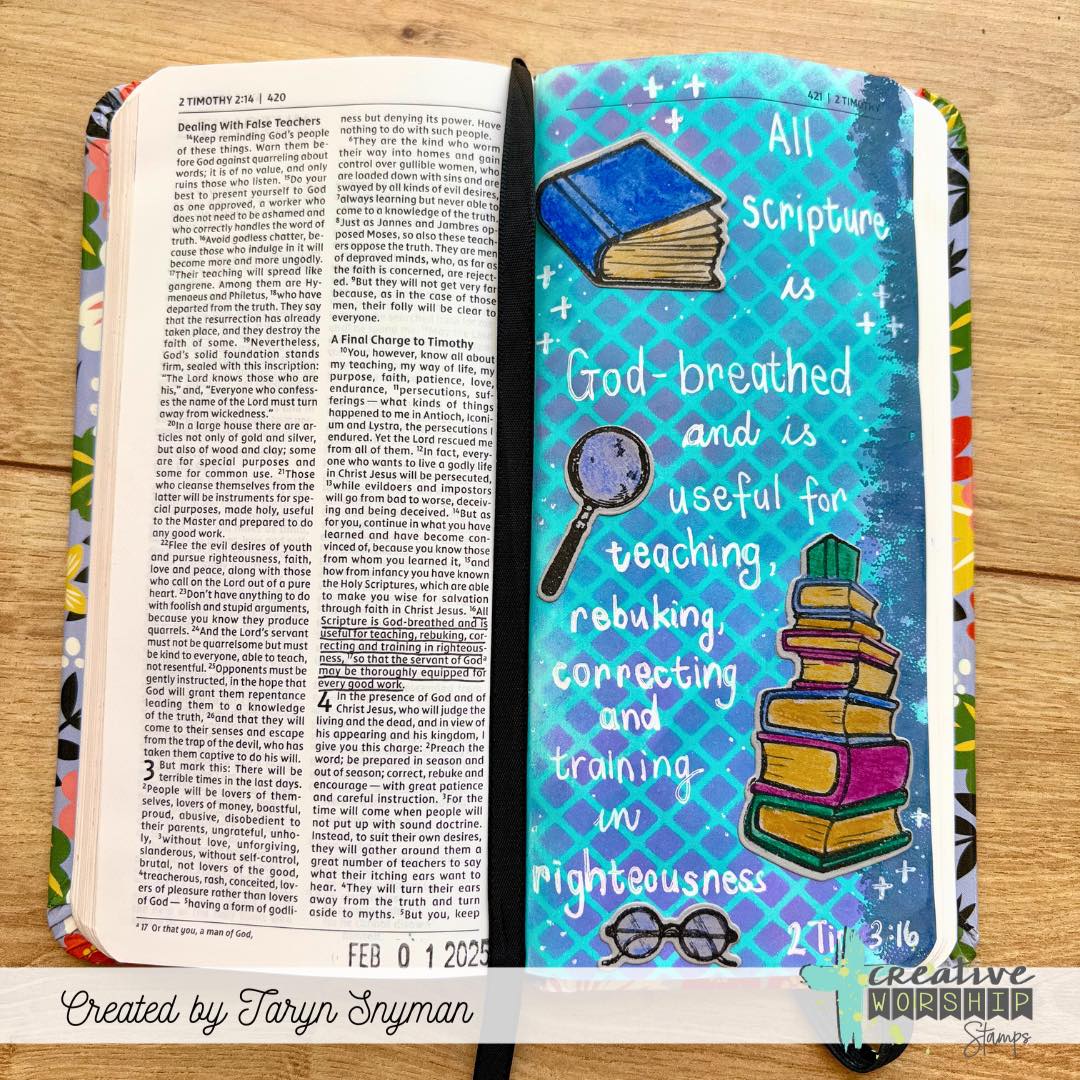 2 TIMOTHY 2:14 | 420
Dealing With False Teachers
14Keep reminding God's people
of these things. Warn them be-
fore God against quarreling about
words; it is of no value, and only
ruins those who listen. 15Do your
best to present yourself to God
as one approved, a worker who
does not need to be ashamed and
who correctly handles the word of
truth. 16Avoid godless chatter, be-
cause those who indulge in it will
become more and more ungodly.
17Their teaching will spread like
gangrene. Among them are Hy-
menaeus and Philetus, 18who have
departed from the truth. They say
that the resurrection has already
taken place, and they destroy the
faith of some. 19Nevertheless,
God's solid foundation stands
firm, sealed with this inscription:
"The Lord knows those who are
his," and, "Everyone who confess-
es the name of the Lord must turn
away from wickedness."
20In a large house there are ar-
ticles not only of gold and silver,
but also of wood and clay; some
are for special purposes and
some for common use. 21Those
who cleanse themselves from the
latter will be instruments for spe-
cial purposes, made holy, useful
to the Master and prepared to do
any good work.
22Flee the evil desires of youth
and pursue righteousness, faith,
love and peace, along with those
who call on the Lord out of a pure
heart. 23Don't have anything to do
with foolish and stupid arguments,
because you know they produce
quarrels. 24And the Lord's servant
must not be quarrelsome but must
be kind to everyone, able to teach,
not resentful. 25Opponents must be
gently instructed, in the hope that
God will grant them repentance
leading them to a knowledge
of the truth, 26and that they will
come to their senses and escape
from the trap of the devil, who has
taken them captive to do his will.
3 But mark this: There will be
terrible times in the last days.
2People will be lovers of them-
selves, lovers of money, boastful,
proud, abusive, disobedient to
their parents, ungrateful, unho-
ly, 3without love, unforgiving,
slanderous, without self-control,
brutal, not lovers of the good,
4treacherous, rash, conceited, lov-
ers of pleasure rather than lovers
of God— 5having a form of godli-
ness but denying its power. Have
nothing to do with such people.
6They are the kind who worm
their way into homes and gain
control over gullible women, who
are loaded down with sins and are
swayed by all kinds of evil desires,
7always learning but never able to
come to a knowledge of the truth.
8Just as Jannes and Jambres op-
posed Moses, so also these teach-
ers oppose the truth. They are men
of depraved minds, who, as far as
the faith is concerned, are reject-
ed. 9But they will not get very far
because, as in the case of those
men, their folly will be clear to
everyone.
A Final Charge to Timothy
10You, however, know all about
my teaching, my way of life, my
purpose, faith, patience, love,
endurance, 11persecutions, suf-
ferings — what kinds of things
happened to me in Antioch, Iconi-
um and Lystra, the persecutions I
endured. Yet the Lord rescued me
from all of them. 12In fact, every-
one who wants to live a godly life
in Christ Jesus will be persecuted,
13while evildoers and impostors
will go from bad to worse, deceiv-
ing and being deceived. 14But as
for you, continue in what you have
learned and have become con-
vinced of, because you know those
from whom you learned it, 15and
how from infancy you have known
the Holy Scriptures, which are able
to make you wise for salvation
through faith in Christ Jesus. 16All
Scripture is God-breathed and is
useful for teaching, rebuking, cor-
recting and training in righteous-
ness, 17so that the servant of Goda
may be thoroughly equipped for
every good work.
4 In the presence of God and of
Christ Jesus, who will judge the
living and the dead, and in view of
his appearing and his kingdom, I
give you this charge: 2Preach the
word; be prepared in season and
out of season; correct, rebuke and
encourage — with great patience
and careful instruction. 3For the
time will come when people will
not put up with sound doctrine.
Instead, to suit their own desires,
they will gather around them a
great number of teachers to say
what their itching ears want to
hear. 4They will turn their ears
away from the truth and turn
aside to myths. 5But you, keep
a 17 Or that you, a man of God,
FEB 0 1 2025
421 | 2 TIMOTHY
All
scripture
is
God-breathed
and is
useful for
teaching,
rebuking,
correcting
and
training
in
righteousness
2 Ti 3:16
Created by Taryn Snyman
creative
WORSHIP
Stamps